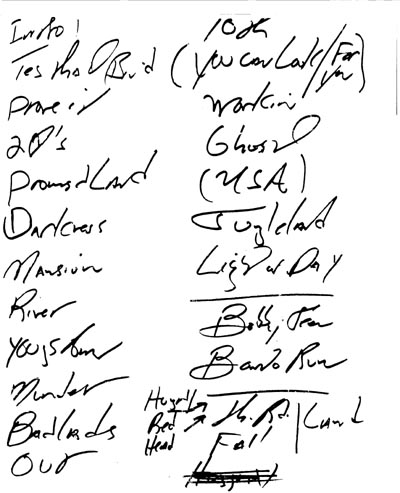 Intro!
Ties that Bind
Prove it
2 ♡'s
Promised Land
Darkness
Mansion
River
Youngstown
Murder
Badlands
Out
10th
(You can Look / For You)
Workin
Ghost
(USA)
Jungleland
Light of Day
Bobby Jean
Born to Run
Hungry
Red
Head
Th. Rd.
Land
Fall